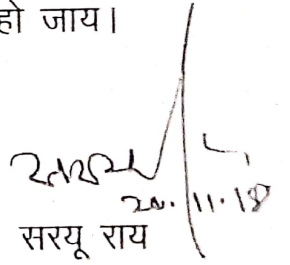 हो जाय।
20.11.18
सरयू राय